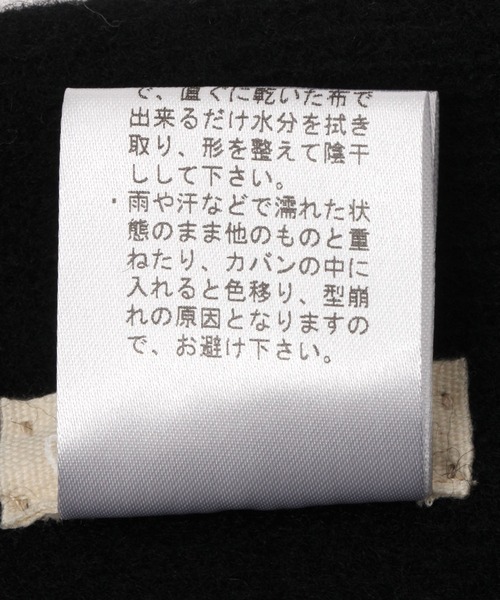 で、直ぐに乾いた布で
出来るだけ水分を拭き
取り、形を整えて陰干
 しして下さい。
・雨や汗などで濡れた状
態のまま他のものと重
ねたり、カバンの中に
入れると色移り、型崩
れの原因となりますの
で、お避け下さい。